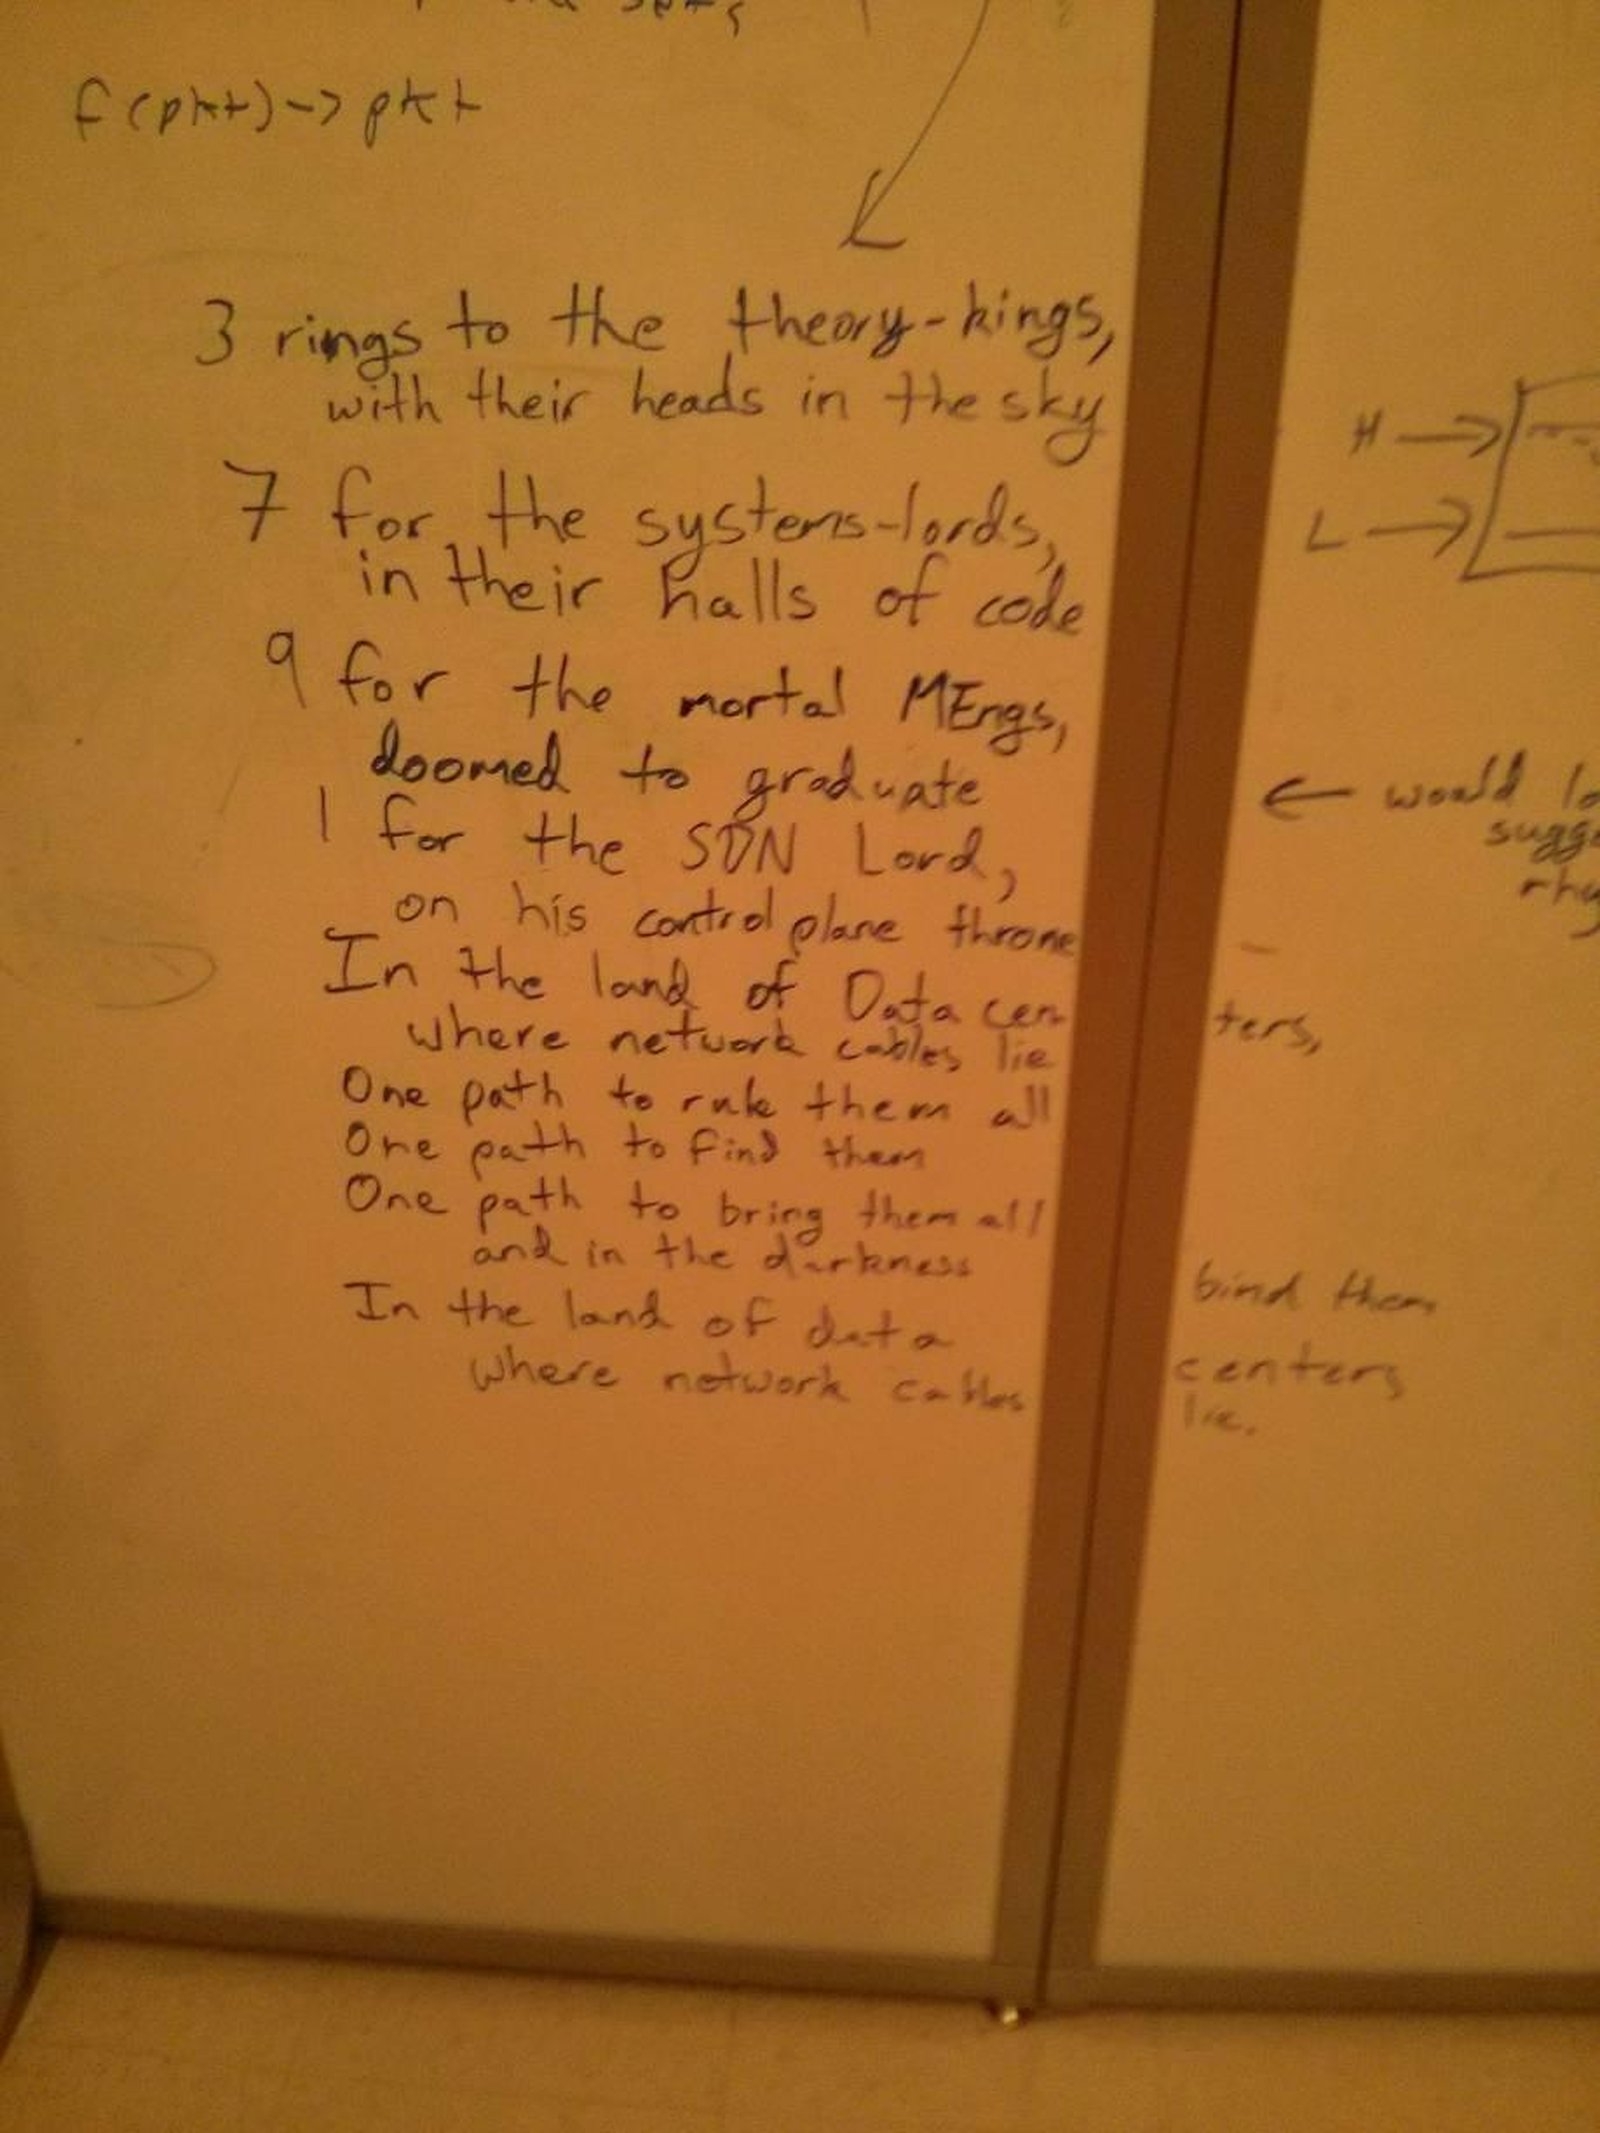 f(pkt) -> pkt
3 rings to the theory-kings,
with their heads in the sky
7 for the systems-lords,
in their halls of code
9 for the mortal MEngs,
doomed to graduate
1 for the SDN Lord,
on his control plane throne
In the land of Data centers,
where network cables lie
One path to rule them all
One path to find them
One path to bring them all
and in the darkness bind them
In the land of data centers
where network cables lie.
H →
L →
← would